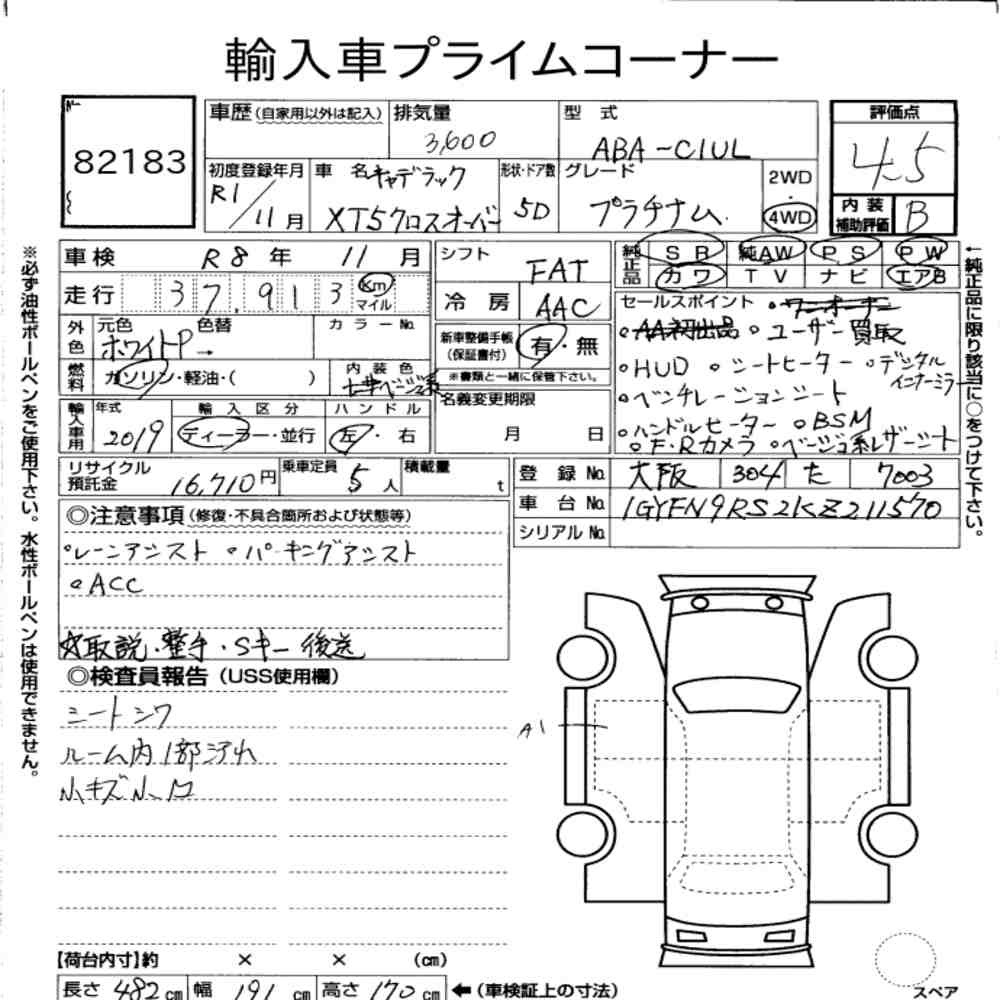 輸入車プライムコーナー
82183
車歴 (自家用以外は記入) 排気量 3,600 型 式 ABA-C1UL 評価点 4.5
初度登録年月 R1/11月 車 名 キャデラック XT5クロスオーバー 形状・ドア数 5D グレード プラチナム 2WD・4WD
内装補助評価 B
車検 R8年 11月 シフト FAT
純正品 SR 純AW PS PW
カワ TV ナビ エアB
走行 37,913 Km マイル 冷房 AAC
外色 元色 ホワイトP → 色替 カラーNo.
新車整備手帳(保証書付) 有・無
※書類と一緒に保管下さい。
燃料 ガソリン・軽油・( ) 内装色 ベージュ系
名義変更期限 月 日
輸入車用 年式 2019 輸入区分 ディーラー・並行 ハンドル 左・右
リサイクル預託金 16,710円 乗車定員 5人 積載量 t
セールスポイント ワンオーナー
AA初出品 ユーザー買取
HUD シートヒーター デジタルインナーミラー
ベンチレーションシート
ハンドルヒーター BSM
F・Rカメラ ベージュ系レザーシート
登録No. 大阪 304 た 7003
車台No. 1GYFN9RS2KZ211570
シリアルNo.
◎注意事項 (修復・不具合箇所および状態等)
レーンアシスト パーキングアシスト
ACC
☆取説・整手・Sキー後送
◎検査員報告 (USS使用欄)
シートシワ
ルーム内1部汚れ
小キズ小凹
A1
【荷台内寸】約 × × (cm)
長さ 482cm 幅 191cm 高さ 170cm ←(車検証上の寸法)
スペア
※必ず油性ボールペンをご使用下さい。水性ボールペンは使用できません。
←純正品に限り該当に○をつけて下さい。